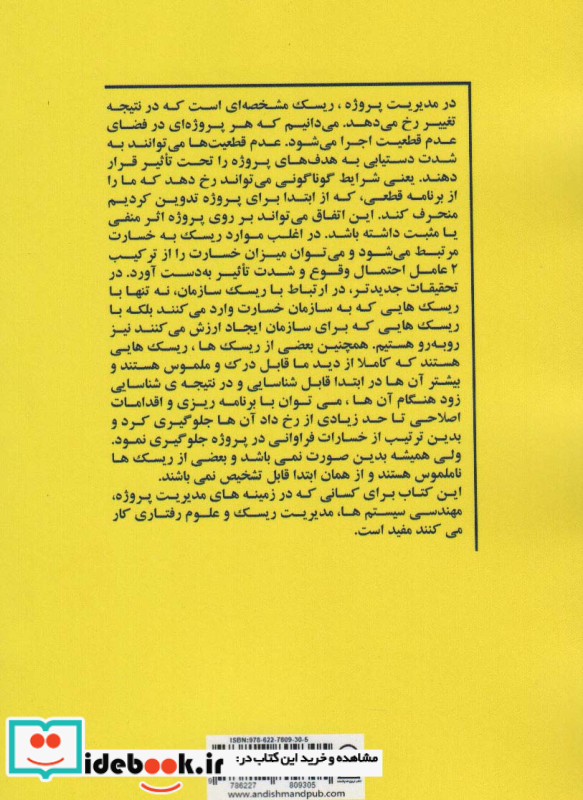 در مدیریت پروژه، ریسک مشخصه‌ای است که در نتیجه
تغییر رخ می‌دهد. می‌دانیم که هر پروژه‌ای در فضای
عدم قطعیت اجرا می‌شود. عدم قطعیت‌ها می‌توانند به
شدت دستیابی به هدف‌های پروژه را تحت تأثیر قرار
دهند. یعنی شرایط گوناگونی می‌تواند رخ دهد که ما را
از برنامه قطعی، که از ابتدا برای پروژه تدوین کردیم
منحرف کند. این اتفاق می‌تواند بر روی پروژه اثر منفی
یا مثبت داشته باشد. در اغلب موارد ریسک به خسارت
مرتبط می‌شود و می‌توان میزان خسارت را از ترکیب
۲ عامل احتمال وقوع و شدت تأثیر به‌دست آورد. در
تحقیقات جدیدتر، در ارتباط با ریسک سازمان، نه تنها با
ریسک هایی که به سازمان خسارت وارد می‌کنند بلکه با
ریسک هایی که برای سازمان ایجاد ارزش می کنند نیز
روبه‌رو هستیم. همچنین بعضی از ریسک ها، ریسک هایی
هستند که کاملا از دید ما قابل درک و ملموس هستند و
بیشتر آن ها در ابتدا قابل شناسایی و در نتیجه ی شناسایی
زود هنگام آن ها، می توان با برنامه ریزی و اقدامات
اصلاحی تا حد زیادی از رخ داد آن ها جلوگیری کرد و
بدین ترتیب از خسارات فراوانی در پروژه جلوگیری نمود.
ولی همیشه بدین صورت نمی باشد و بعضی از ریسک ها
ناملموس هستند و از همان ابتدا قابل تشخیص نمی باشند.
این کتاب برای کسانی که در زمینه های مدیریت پروژه،
مهندسی سیستم ها، مدیریت ریسک و علوم رفتاری کار
می کنند مفید است.
ISBN:978-622-7809-30-5
مشاهده و خرید این کتاب در:
idebook.ir
786227 809305
www.andishmandpub.com